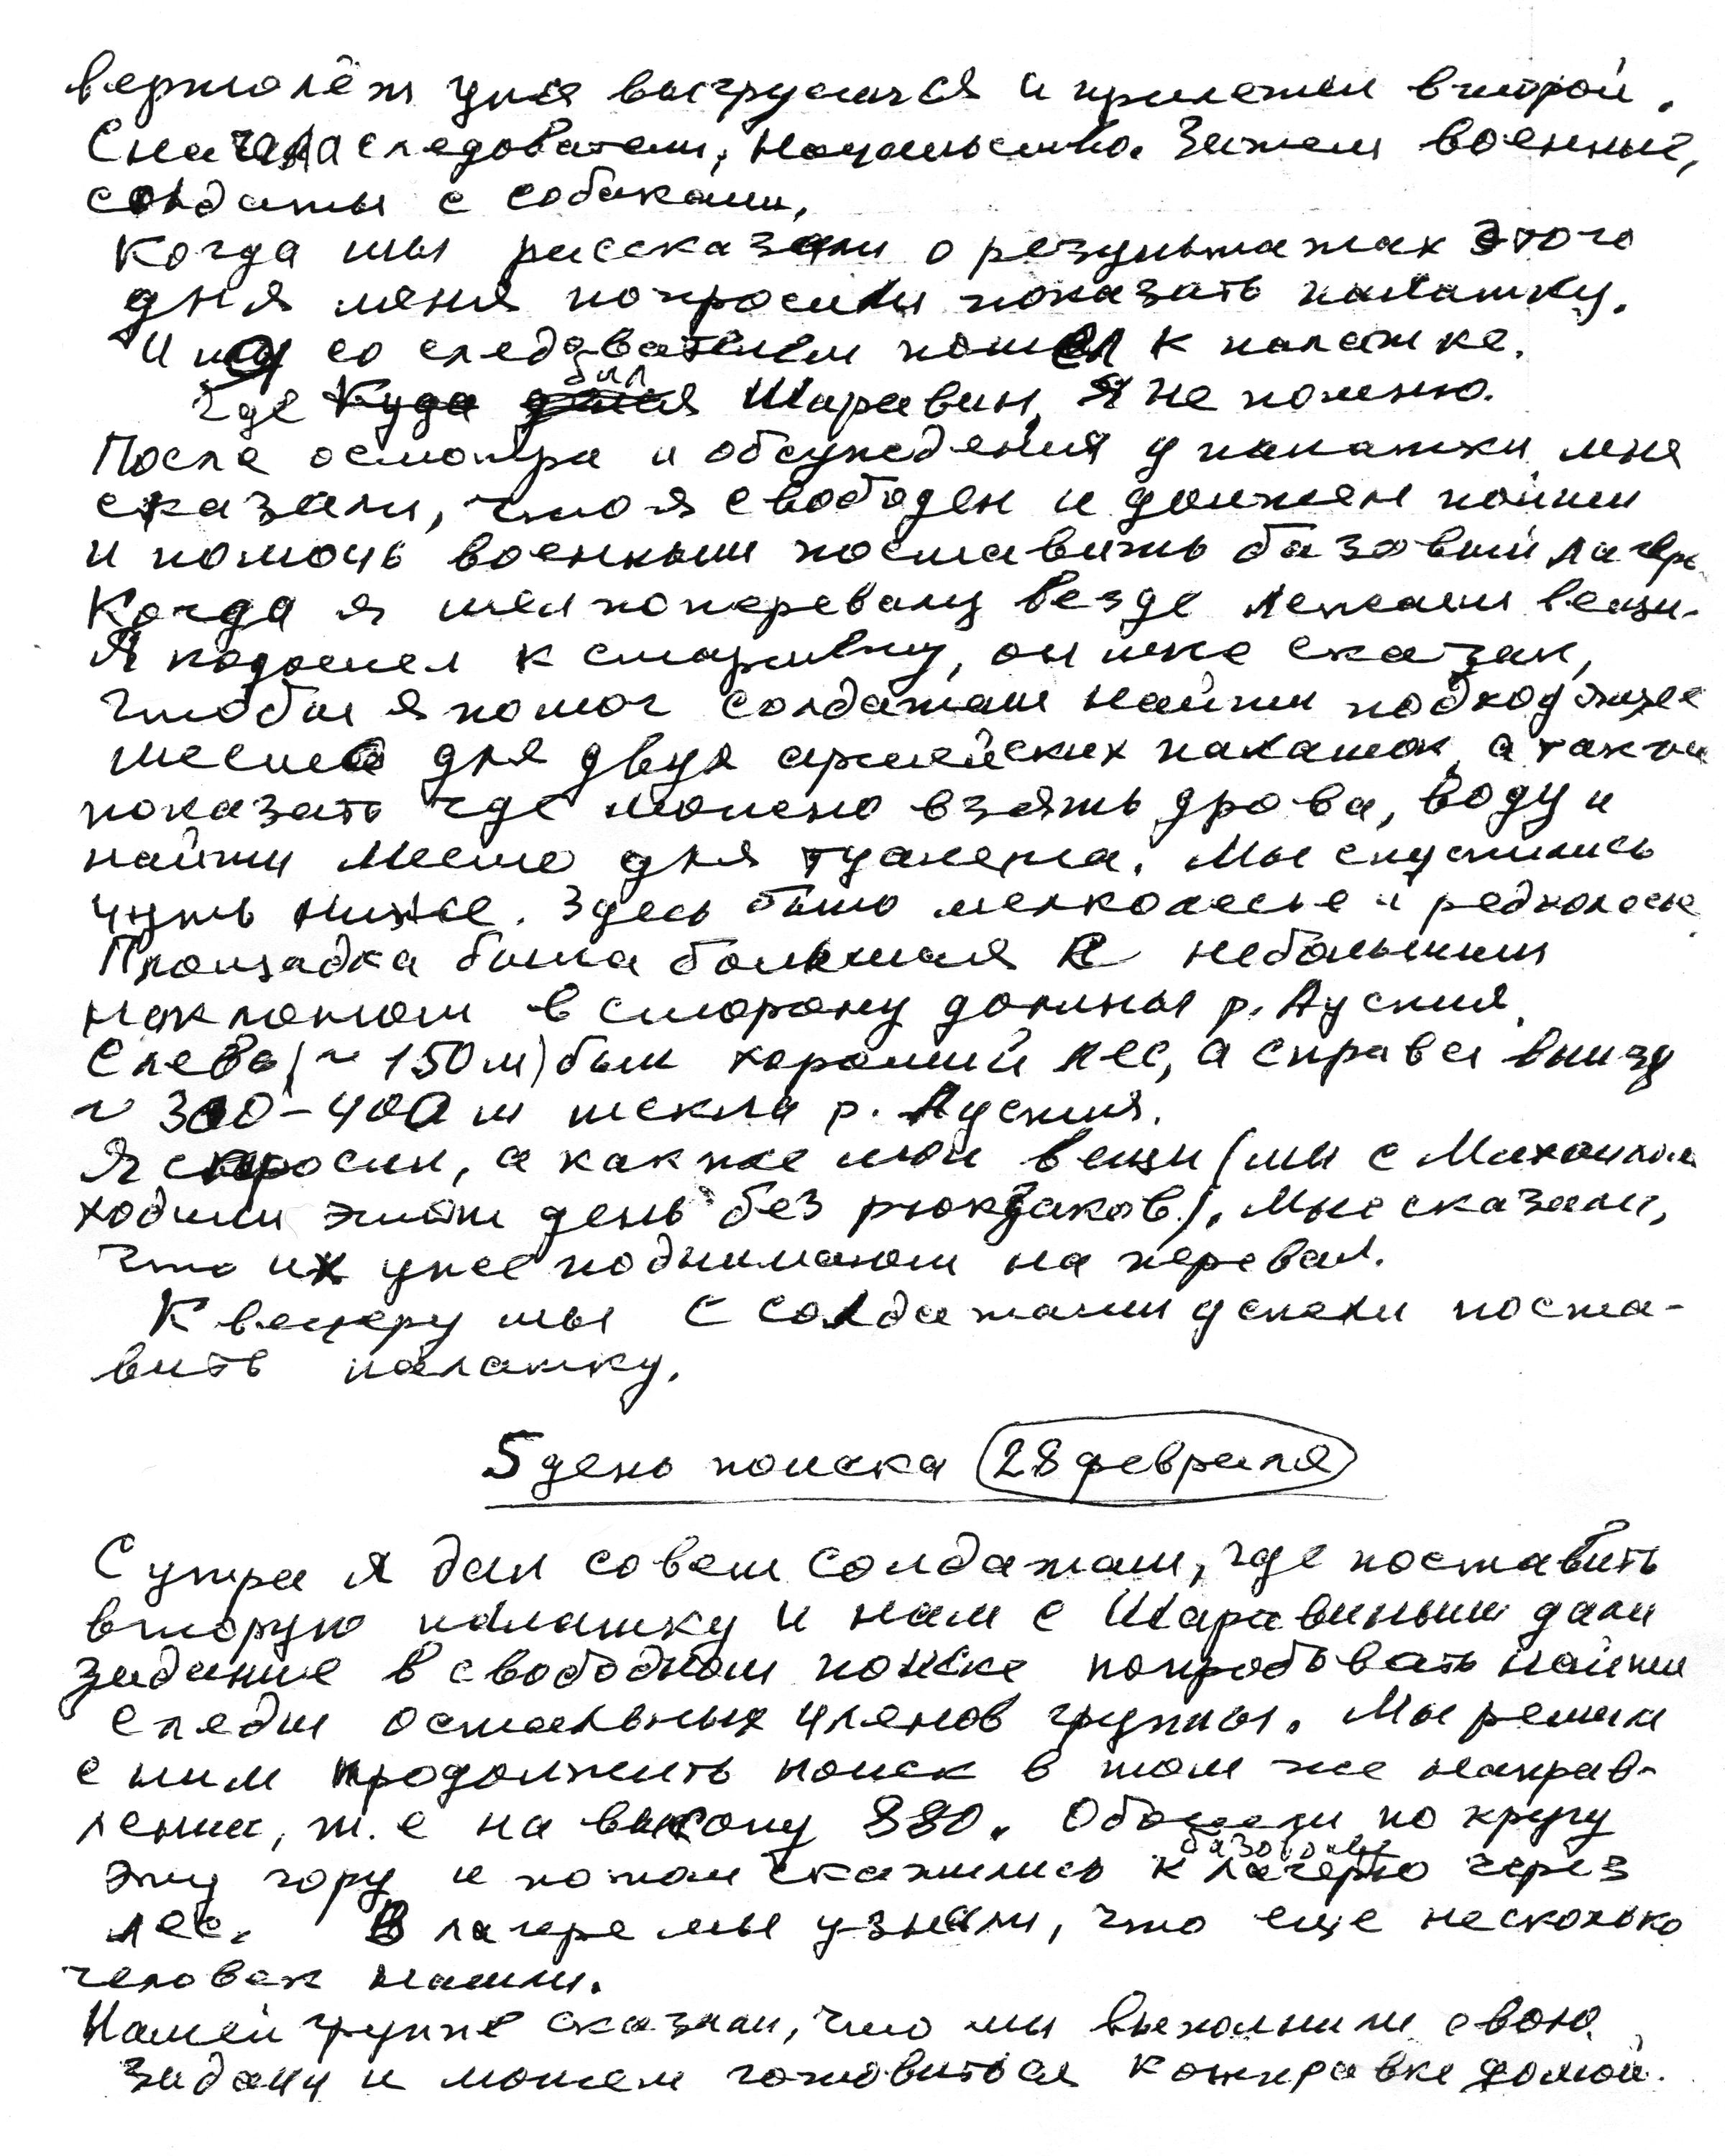 вертолёт уже выгрузился и прилетел второй.
Сначала следователи, начальство. Затем военные,
солдаты с собаками.
Когда мы рассказали о результатах этого
дня меня попросили показать палатку.
И я со следователем пошел к палатке.
Где был Шаравин, я не помню.
После осмотра и обсуждения у палатки мне
сказали, что я свободен и должен пойти
и помочь военным поставить базовый лагерь.
Когда я шел по перевалу везде лежали вещи.
Я подошел к старшему, он мне сказал,
чтобы я помог солдатам найти подходящее
место для двух армейских палаток, а также
показать где можно взять дрова, воду и
найти место для туалета. Мы спустились
чуть ниже. Здесь было мелколесье и редколесье.
Площадка была большая с небольшим
наклоном в сторону долины р. Ауспия.
Слева (~ 150 м) был хороший лес, а справа внизу
~ 300-400 м текла р. Ауспия.
Я спросил, а как же мои вещи (мы с Михаилом
ходили этот день без рюкзаков). Мне сказали,
что их уже поднимают на перевал.
К вечеру мы с солдатами успели поста-
вить палатку.
5 день поиска (28 февраля)
С утра я дал совет солдатам, где поставить
вторую палатку и нам с Шаравиным дали
задание в свободном поиске попробовать найти
следы остальных членов группы. Мы решили
с ним продолжить поиск в том же направ-
лении, т.е на высоту 880. Обошли по кругу
эту гору и потом скатились к базовому лагерю через
лес. В лагере мы узнали, что еще несколько
человек нашли.
Нашей группе сказали, что мы выполнили свою
задачу и можем готовиться к отправке домой.